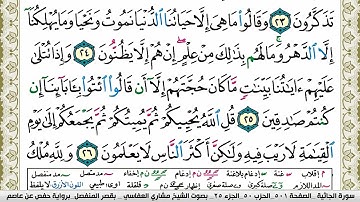 تَذَكَّرُونَ ٢٣ وَقَالُوا۟ مَا هِىَ إِلَّا حَيَاتُنَا ٱلدُّنْيَا نَمُوتُ وَنَحْيَا وَمَا يُهْلِكُنَآ
إِلَّا ٱلدَّهْرُ وَمَا لَهُم بِذَٰلِكَ مِنْ عِلْمٍ إِنْ هُمْ إِلَّا يَظُنُّونَ ٢٤ وَإِذَا تُتْلَىٰ
عَلَيْهِمْ ءَايَٰتُنَا بَيِّنَٰتٍ مَّا كَانَ حُجَّتَهُمْ إِلَّآ أَن قَالُوا۟ ٱئْتُوا۟ بِـَٔابَآئِنَآ إِن
كُنتُمْ صَٰدِقِينَ ٢٥ قُلِ ٱللَّهُ يُحْيِيكُمْ ثُمَّ يُمِيتُكُمْ ثُمَّ يَجْمَعُكُمْ إِلَىٰ يَوْمِ
ٱلْقِيَٰمَةِ لَا رَيْبَ فِيهِ وَلَٰكِنَّ أَكْثَرَ ٱلنَّاسِ لَا يَعْلَمُونَ ٢٦ وَلِلَّهِ مُلْكُ
سورة الجاثية الصفحة ٥٠١ الجزء ٢٥ بصوت الشيخ مشاري العفاسي بقصر المنفصل برواية حفص عن عاصم